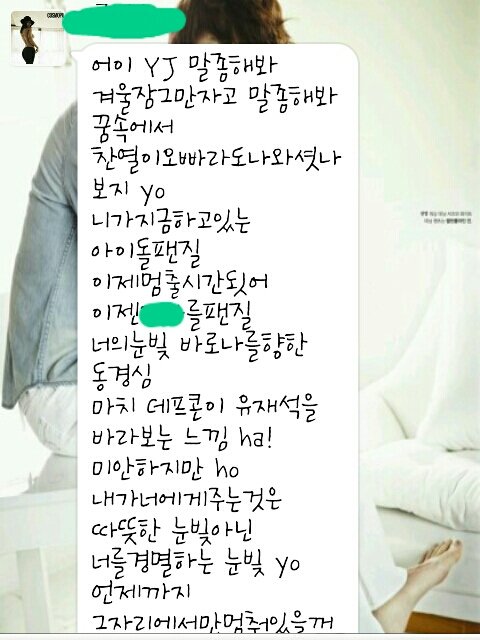 COSMOPO
어이 YJ 말좀해봐
겨울잠그만자고 말좀해봐
꿈속에서
찬열이오빠라도나와셧나
보지 yo
니가지금하고있는
아이돌팬질
이제멈출시간됫어
이젠 를팬질
너의눈빛 바로나를향한
동경심
마치 데프콘이 유재석을
바라보는 느낌 ha!
미안하지만 ho
내가너에게주는것은
따뜻한 눈빛아닌
너를경멸하는 눈빛 yo
언제까지
그자리에서만멈춰있을꺼